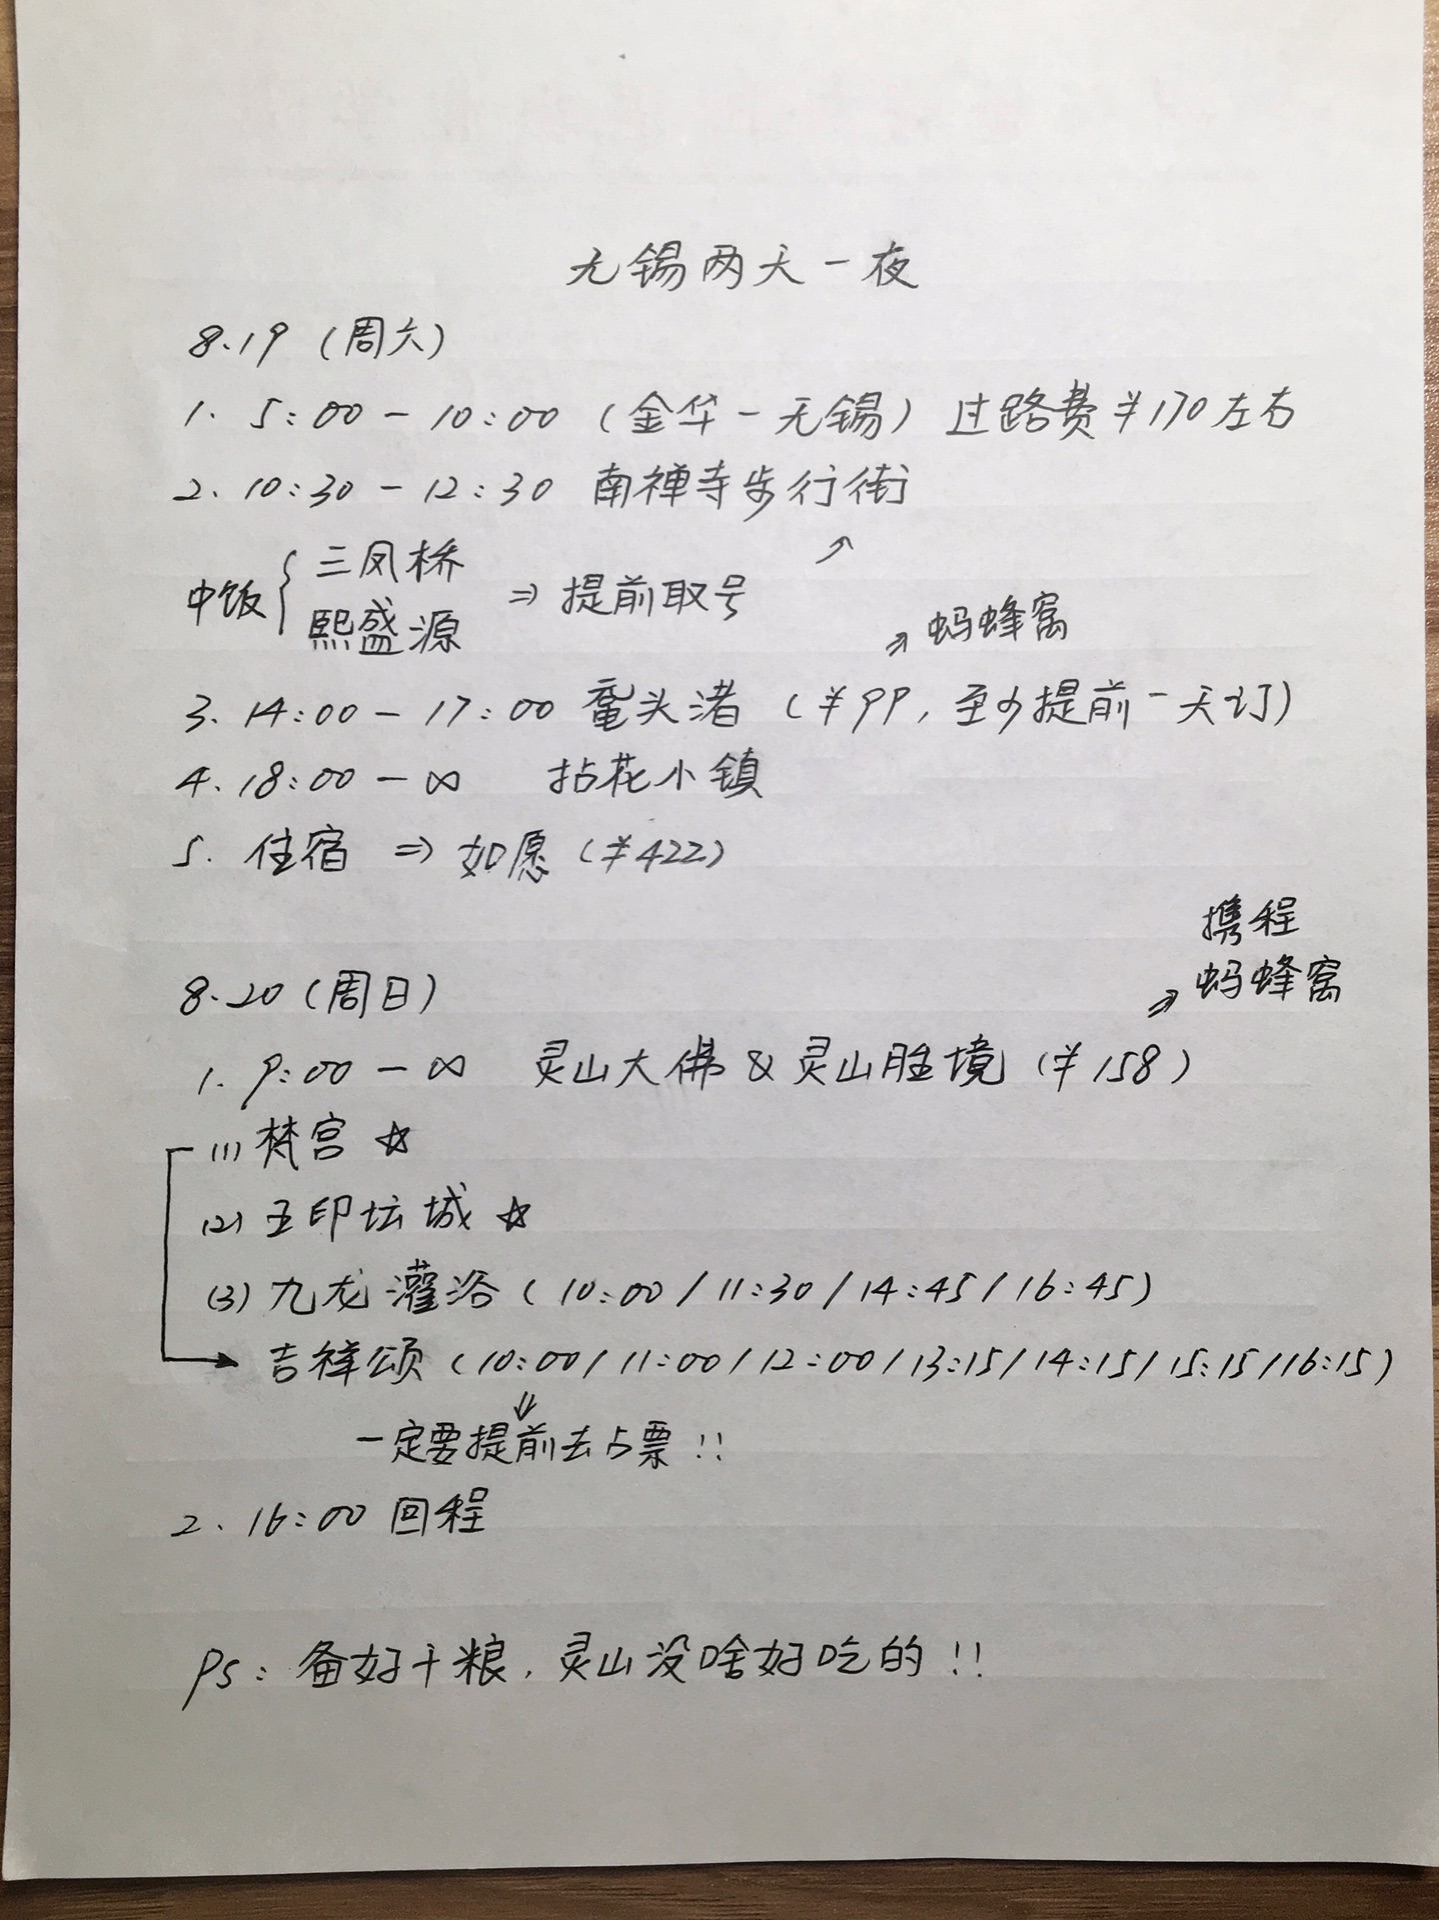 无锡两天一夜
8.19（周六）
1. 5:00 — 10:00（金华 — 无锡）过路费¥170左右
2. 10:30 — 12:30 南禅寺步行街
↗
中饭 { 三凤桥
熙盛源 ⇒ 提前取号
↗ 蚂蜂窝
3. 14:00 — 17:00 鼋头渚（¥99，至少提前一天订）
4. 18:00 — ∞ 拈花小镇
5. 住宿 ⇒ 如愿（¥422）
8.20（周日）
携程
↗ 蚂蜂窝
1. 9:00 — ∞ 灵山大佛 & 灵山胜境（¥158）
(1) 梵宫 ☆
(2) 五印坛城 ☆
(3) 九龙灌浴（10:00 / 11:30 / 14:45 / 16:45）
→ 吉祥颂（10:00 / 11:00 / 12:00 / 13:15 / 14:15 / 15:15 / 16:15）
⇓
一定要提前去占票!!
2. 16:00 回程
Ps：备好干粮，灵山没啥好吃的!!